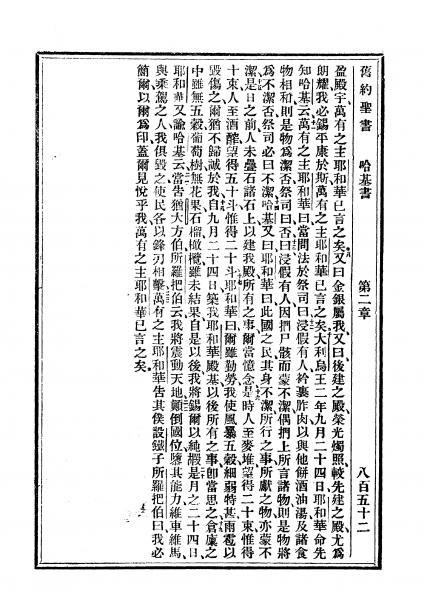 舊約聖書 哈基書 第二章 八百五十二
盈殿宇萬有之主耶和華已言之矣又曰金銀屬我又曰後建之殿榮光燭照較先建之殿尤爲
朗耀我必錫平康於斯萬有之主耶和華已言之矣大利烏王二年九月二十四日耶和華命先
知哈基云萬有之主耶和華曰當問法於祭司曰浸假有人衿裹胙肉以與他餅酒油湯及諸食
物相和則是物爲潔否祭司曰否曰浸假有人因捫尸骸而蒙不潔偶捫上所言諸物則是物將
爲不潔否祭司必曰不潔哈基又曰耶和華曰此國之民其身不潔所行之事所獻之物亦蒙不
潔是日之前人未疊石諸石上以建我殿所有之事爾當憶念是時人至麥堆望得二十束惟得
十束人至酒醡望得五十斗惟得二十斗耶和華曰爾雖勤勞我使風暴五穀細弱特甚雨雹以
毀傷之爾猶不歸誠於我自九月二十四日築我耶和華殿基以後所有之事卽當思之倉廩之
中雖無五穀葡萄樹無花果石榴橄欖雖未結果自是以後我將錫爾以純嘏是月之二十四日
耶和華又諭哈基云當告猶大方伯所羅把伯云我將震動天地顚倒國位墮其能力維車維馬
與乘駕之人我俱毀之使民各以鋒刃相擊萬有之主耶和華告其僕設鐵子所羅把伯曰我必
簡爾以爾爲印蓋爾見悅乎我萬有之主耶和華已言之矣